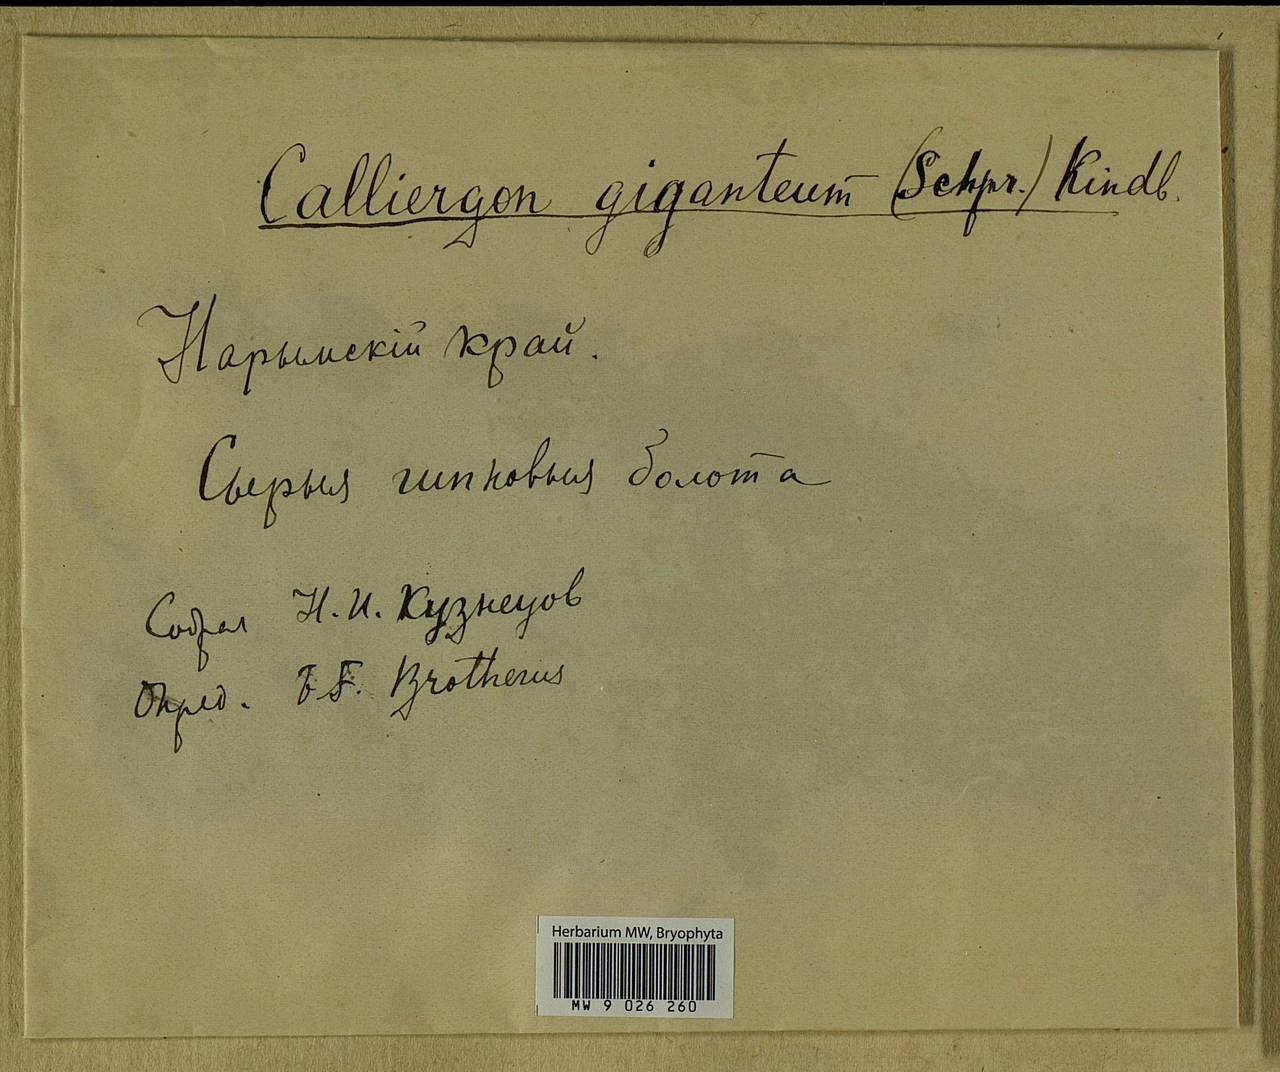 Calliergon giganteum (Schpr.) Kindb.
Нарымскій край.
Сырыя гипновыя болота
Собрал Н. И. Кузнецов
Опред. V. F. Brotherus
Herbarium MW, Bryophyta
MW 9 026 260